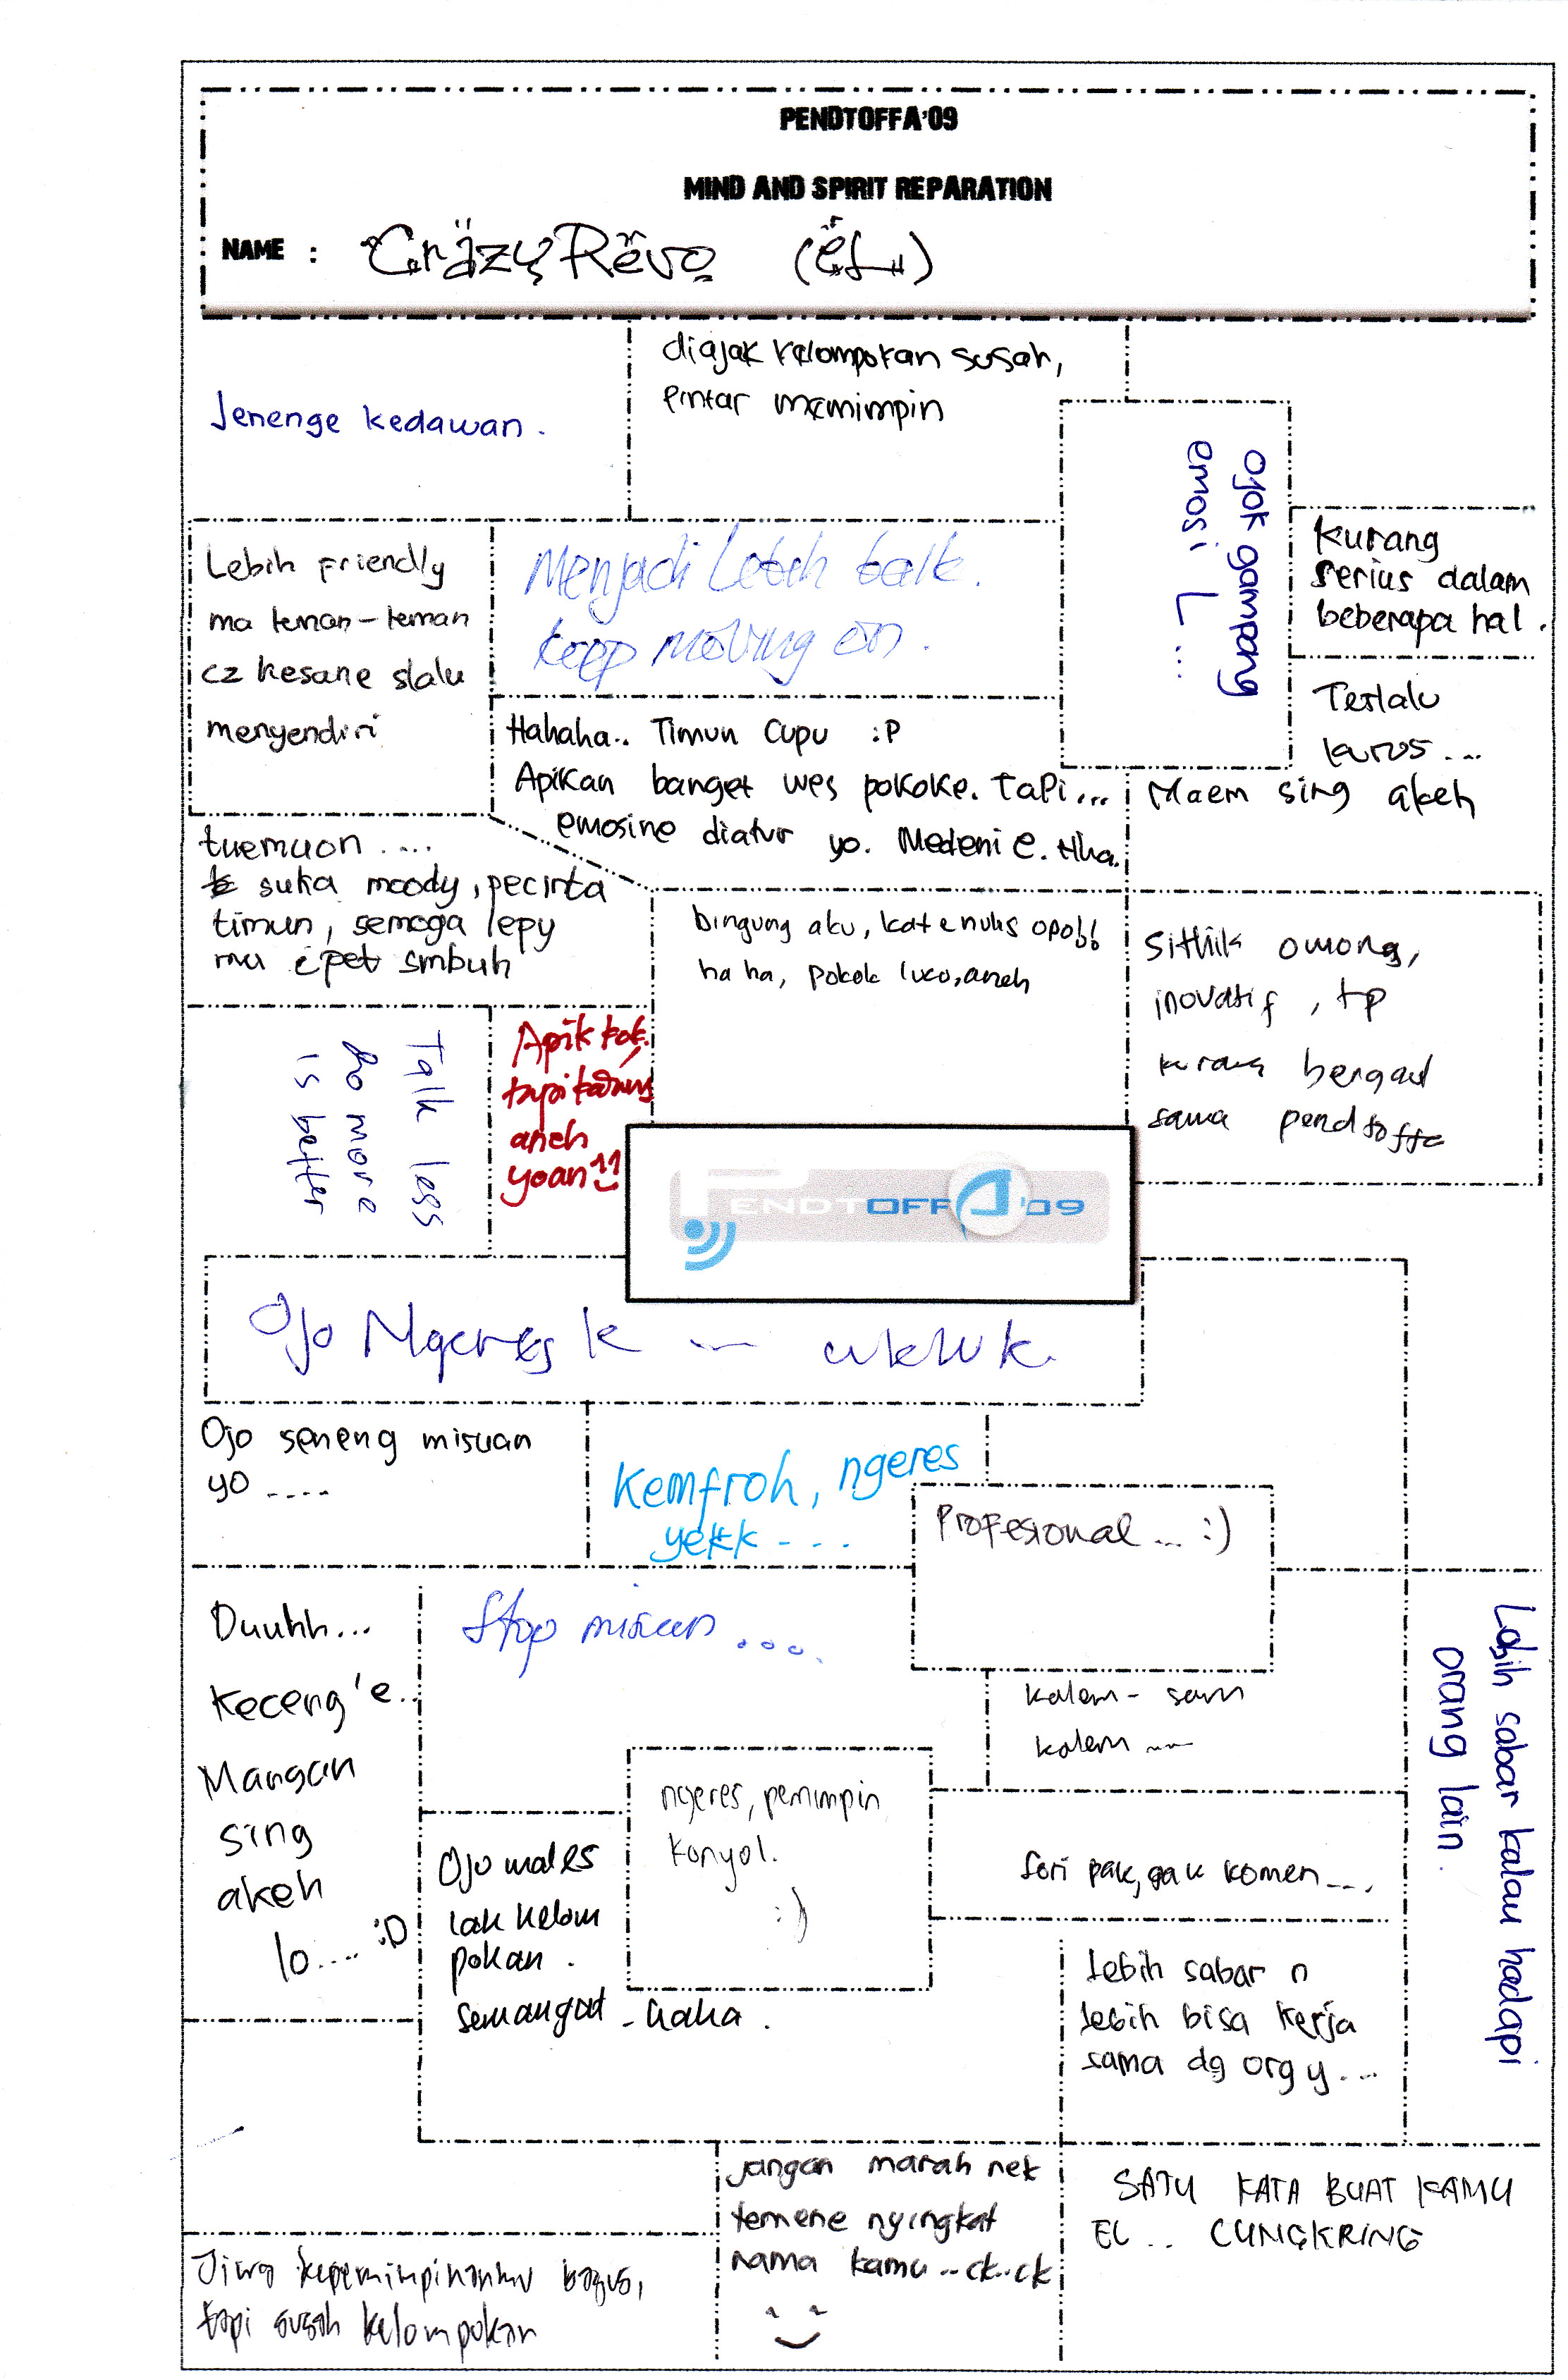 PENDTOFFA'09
MIND AND SPIRIT REPARATION
NAME : CräzyRëvo (ëL)
Jenenge kedawan.
diajak kelompokan susah,
pintar memimpin
ojok gampang
emosi L...
kurang
serius dalam
beberapa hal.
Lebih friendly
ma teman-teman
cz kesane slalu
menyendiri
Menjadi Lebih baik.
keep moving on.
Terlalu
kurus...
Maem sing akeh
Hahaha.. Timun Cupu :P
Apikan banget wes pokoke. Tapi...
emosine diatur yo. Medeni e. Hha.
tuemuon....
suka moody, pecinta
timun, semoga lepy
mu cpet smbuh
bingung aku, kate nulis opo!!
ha ha, pokok luco, aneh
Sithik omong,
inovatif, tp
kurang bergaul
sama pendtoffa
Talk less
Do more
is better
Apik kok.
tapi kadang
aneh
yoan^^
PENDTOFFA'09
Ojo Ngeres k ... wkwk.
Ojo seneng misuan
yo ....
Kemfroh, ngeres
yekk - - -
Profesional ... :)
Duuhh...
Keceng'e..
Mangan
sing
akeh
lo.... :D
Stop misuan ....
kalem - sam
kalem ...
Lebih sabar kalau hadapi
orang lain.
ngeres, pemimpin
konyol.
:)
Ojo males
lak kelom
pokan.
Semangat - haha.
Sori pak, gak komen...
Lebih sabar n
lebih bisa kerja
sama dg org y...
jangan marah nek
temene nyingkat
nama kamu..ck..ck
SATU KATA BUAT KAMU
EL .. CUNGKRING
Jiwa kepemimpinanmu bagus,
tapi susah kelompokan